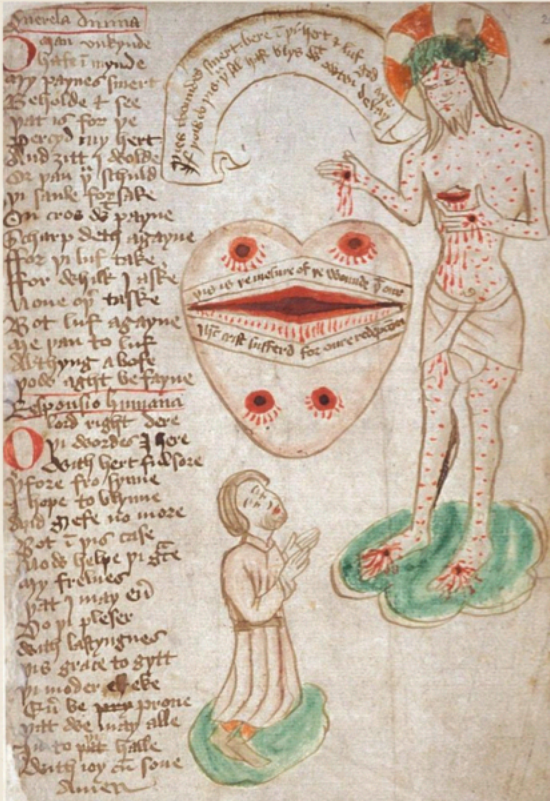 Querela diuina
O man vnkynde
hafe ī mynde
my paynes smert
Beholde & see
þat is for þe
percyd my hert
And ȝitt I wolde
Or þan þu schuld
þi saule forsake
On cros wt payne
Scharp deth agayne
ffor þi luf take
ffor whilk I aske
None oþr taske
Bot luf agayne
Me þan to luf
Al thyng abofe
þow aght be fayne
Responsio humana
O lord right dere
þi wordes I here
With hert ful sore
þerfore fro synne
I hope to blynne
And grefe no more
Bot ī þis case
Now helpe þi gce
My frelnes
þat I may eū
Do þi pleser
With lastyngnes
þis grace to gytt
þi moder eke
Eū be prone
þat we may alle
In to þi halle
With ioy cū sone
Amen
þies woundes smert bere ī þi hert & luf god aye
If þow do þis þu sal haf blys wt owten delay
þis is þe mesure of þe wounde þt our
Ihc crist sufferd for oure redempcion